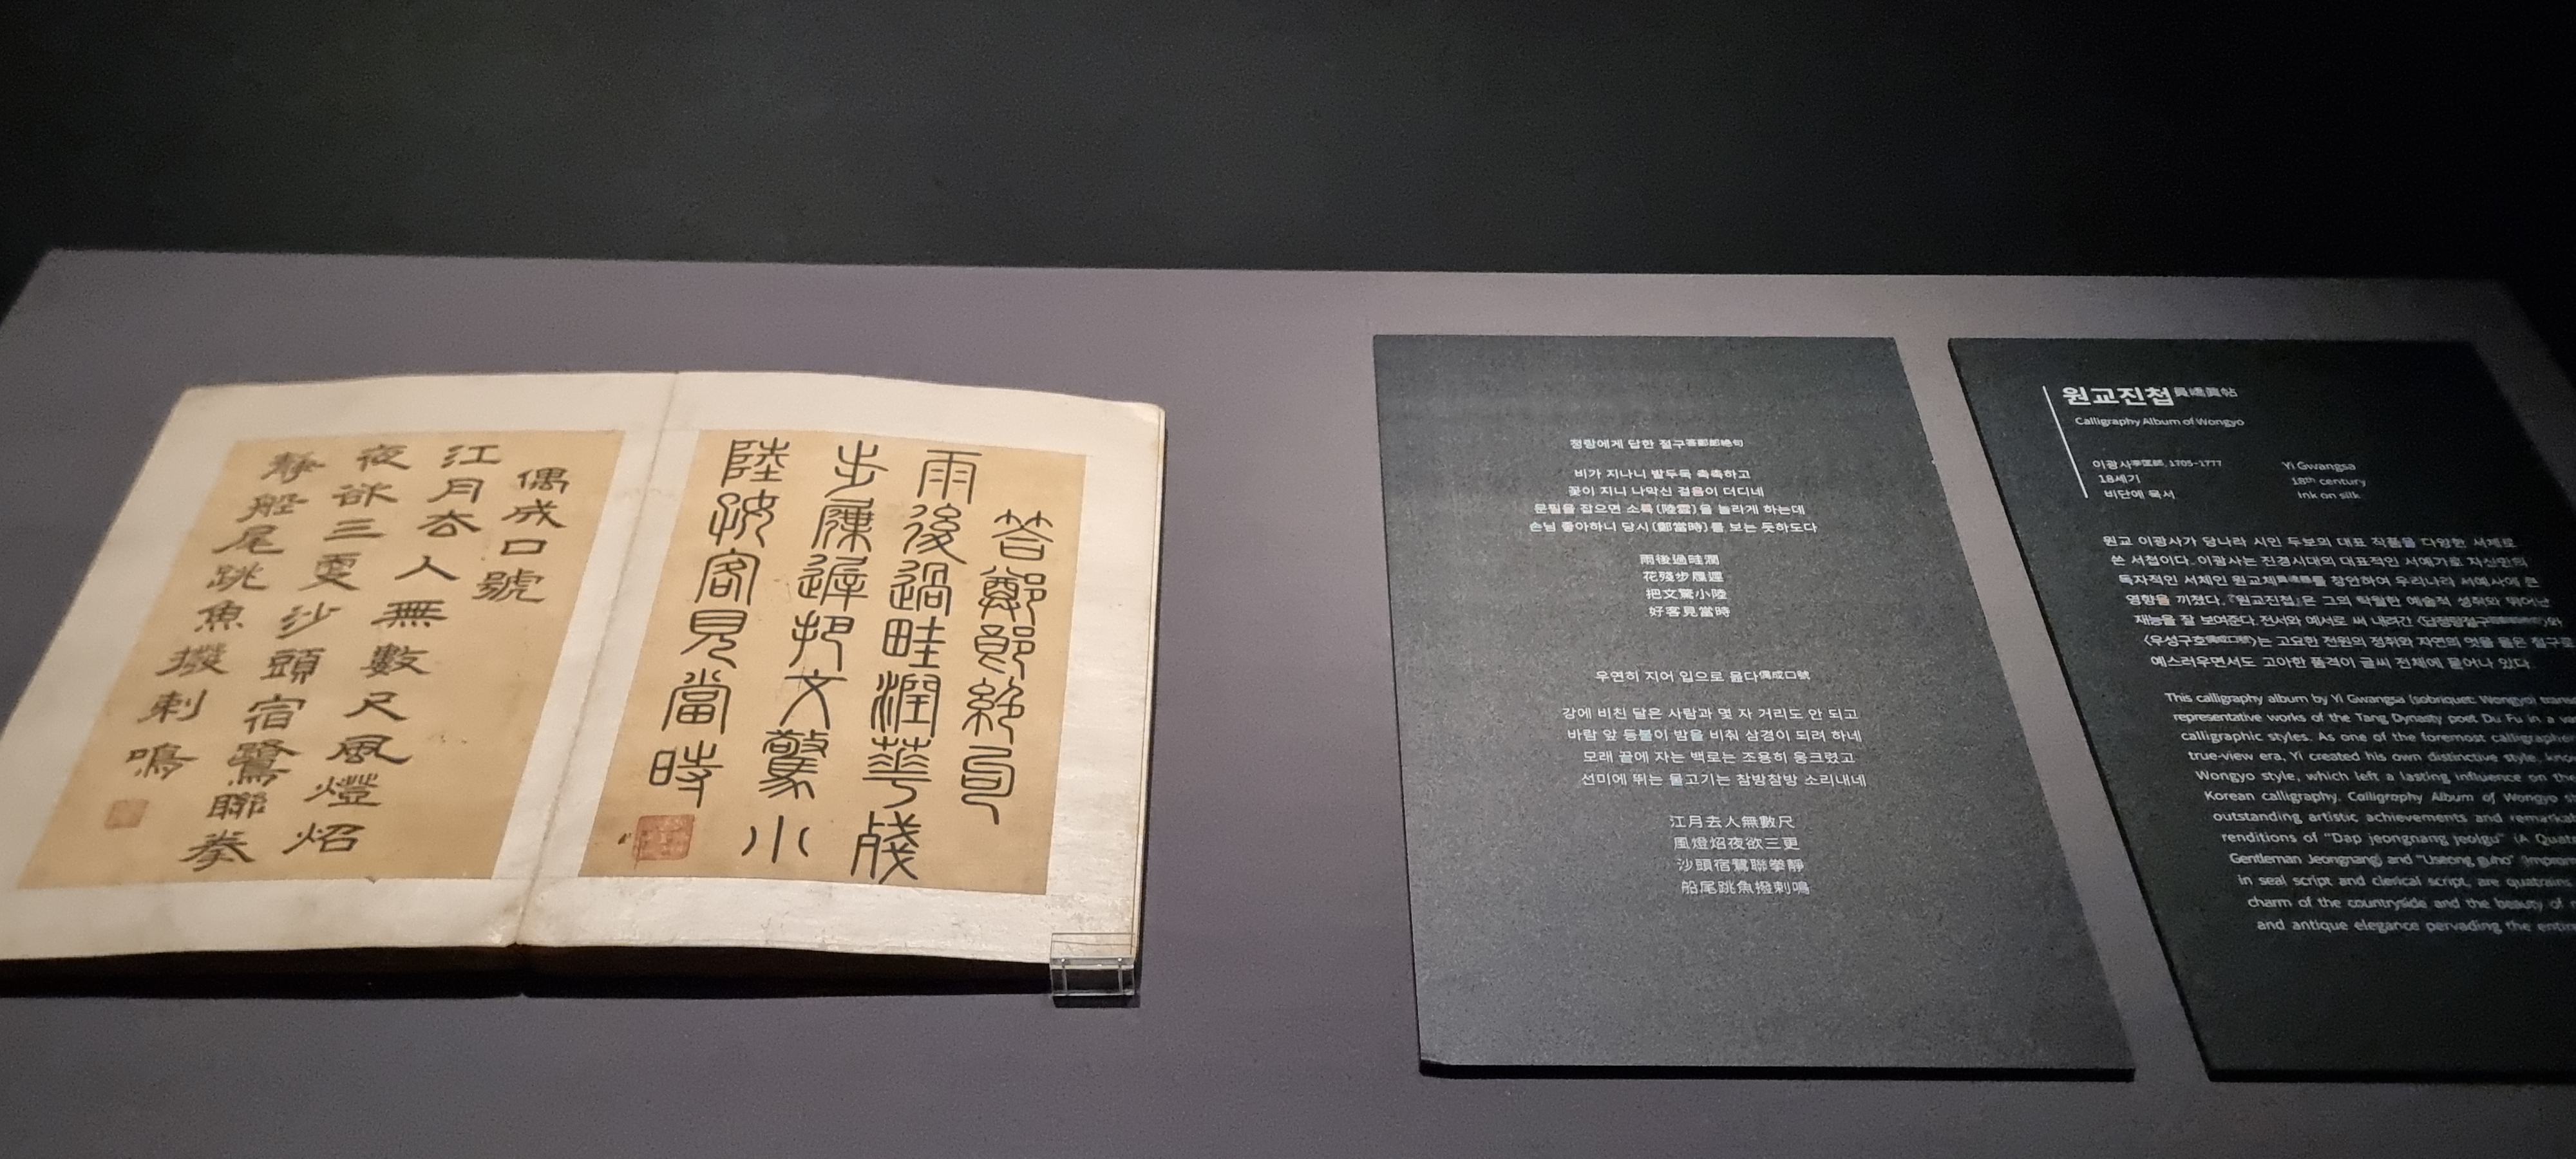 答鄭郎絶句
雨後過畦潤華殘
步屧遲把文驚小
陸好客見當時
偶成口號
江月去人無數尺風燈炤
夜欲三更沙頭宿鷺聯拳
靜船尾跳魚撥剌鳴
정랑에게 답한 절구答鄭郎絶句
비가 지나니 밭두둑 촉촉하고
꽃이 지니 나막신 걸음이 더디네
문필을 잡으면 소륙(陸雲)을 놀라게 하는데
손님 좋아하니 당시(鄭當時)를 보는 듯하도다
雨後過畦潤
花殘步屧遲
把文驚小陸
好客見當時
우연히 지어 입으로 읊다偶成口號
강에 비친 달은 사람과 몇 자 거리도 안 되고
바람 앞 등불이 밤을 비춰 삼경이 되려 하네
모래 끝에 자는 백로는 조용히 웅크렸고
선미에 뛰는 물고기는 참방참방 소리내네
江月去人無數尺
風燈炤夜欲三更
沙頭宿鷺聯拳靜
船尾跳魚撥剌鳴
원교진첩員嶠眞帖
Calligraphy Album of Wongyo
이광사李匡師, 1705-1777
18세기
비단에 묵서
Yi Gwangsa
18th century
Ink on silk
원교 이광사가 당나라 시인 두보의 대표 작품을 다양한 서체로
쓴 서첩이다. 이광사는 진경시대의 대표적인 서예가로 자신만의
독자적인 서체인 원교체를 창안하여 우리나라 서예사에 큰
영향을 끼쳤다. 『원교진첩』은 그의 탁월한 예술적 성취와 뛰어난
재능을 잘 보여준다. 전서와 예서로 써 내려간 〈답정랑절구〉와
〈우성구호偶成口號〉는 고요한 전원의 정취와 자연의 멋을 읊은 절구로
예스러우면서도 고아한 품격이 글씨 전체에 묻어나 있다.
This calligraphy album by Yi Gwangsa (sobriquet: Wongyo)
representative works of the Tang Dynasty poet Du Fu in a
calligraphic styles. As one of the foremost
true-view era, Yi created his own distinctive style,
Wongyo style, which left a lasting influence on the
Korean calligraphy. Calligraphy Album of Wongyo
outstanding artistic achievements and
renditions of "Dap jeongnang jeolgu" (A
Gentleman Jeongnang) and "Useong guho"
in seal script and clerical script, are quatrains
charm of the countryside and the beauty of
and antique elegance pervading the